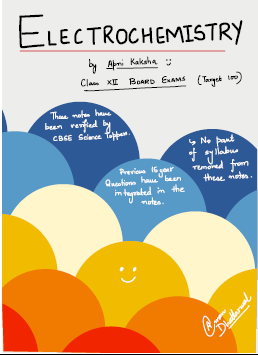 ELECTROCHEMISTRY
by Apni Kaksha
Class XII BOARD EXAMS (Target 100)
These notes have
been verified by
CBSE Science Toppers.
Previous 15 year
Questions have been
integrated in the
notes.
↳ No part
of syllabus
removed from
these notes.